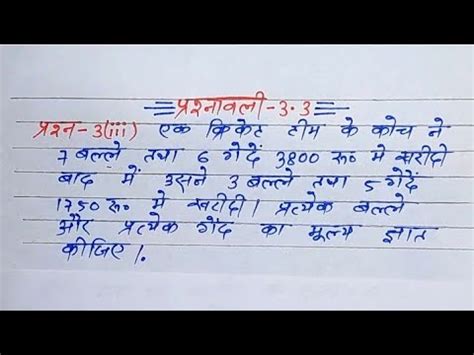 प्रश्नावली-3.3
प्रश्न-3(iii) एक क्रिकेट टीम के कोच ने
7 बल्ले तथा 6 गेदें 3800 रू० मे खरीदी
बाद में उसने 3 बल्ले तथा 5 गेदें
1750 रू० मे खरीदी। प्रत्येक बल्ले
और प्रत्येक गेंद का मूल्य ज्ञात
कीजिए।.